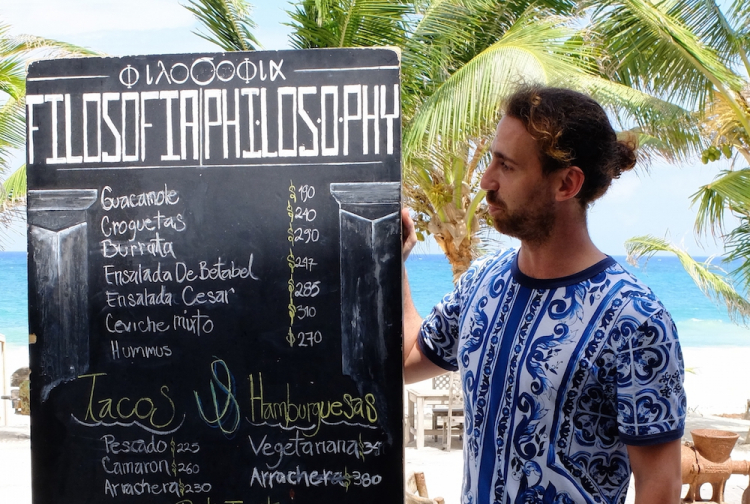 ΦΙΛΟΣΟΦΙΑ
FILOSOFIA|PHI·LOS·O·PHY
Guacamole $190
Croquetas $240
Burrata $290
Ensalada De Betabel $247
Ensalada Cesar $285
Ceviche mixto $310
Hummus $270
Tacos Hamburguesas
Pescado $225 Vegetariana
Camaron $260 Arrachera $380
Arrachera $230